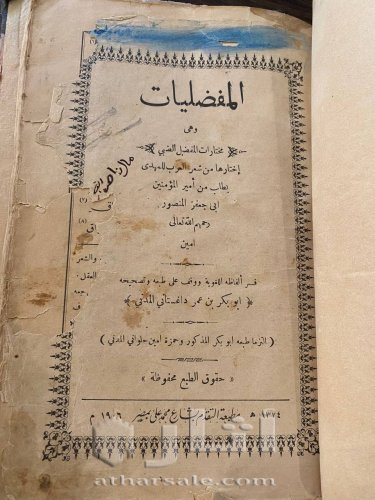 المفضليات
وهى
مختارات المفضل الضبي
إختارها من شعر العرب للمهدى
بطلب من أمير المؤمنين
ابى جعفر المنصور
رحمهم الله تعالى
امين
فسر ألفاظه اللغوية ووقف على طبعه وتصحيحه
﴿ ابو بكر بن عمر داغستاني المدني ﴾
( التزما طبعه ابو بكر المذكور وحمزة امين حلواني المدني )
« حقوق الطبع محفوظة »
١٣٢٤ هـ مطبعة التقدم بشارع محمد على بمصر ١٩٠٦ م
والشعر
العقل
atharsale.com